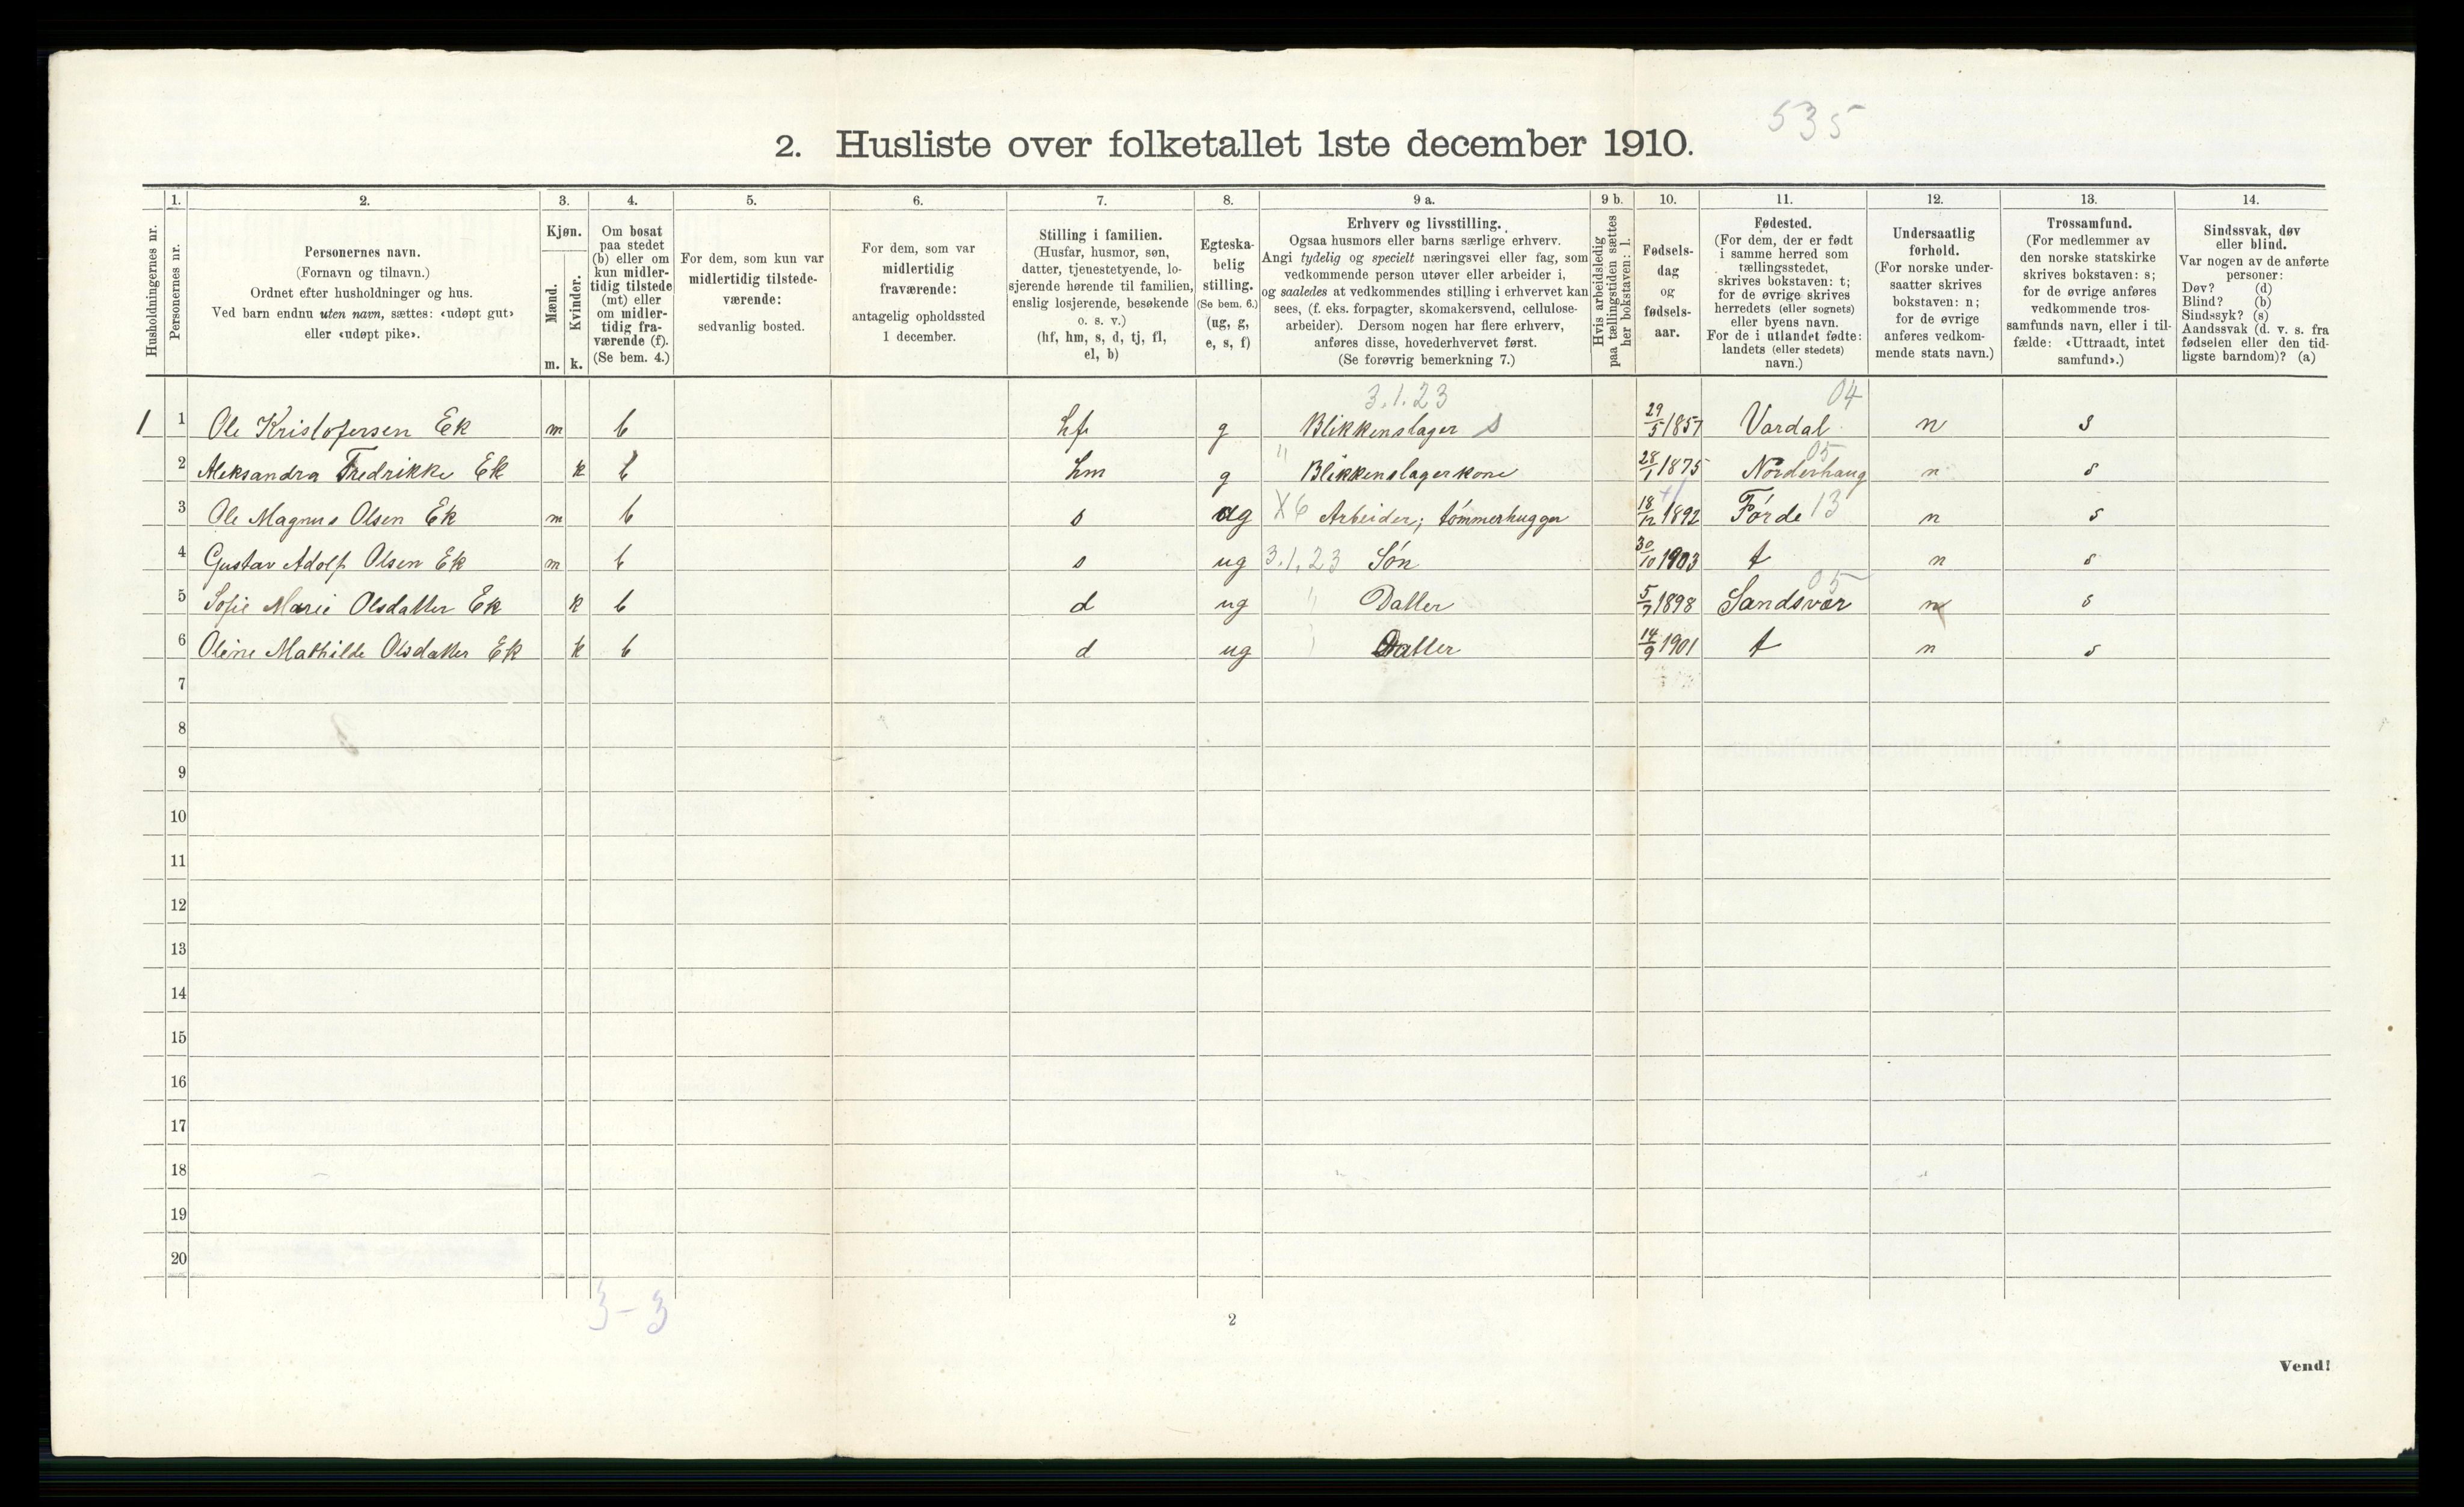 535
2. Husliste over folketallet 1ste december 1910.
Husholdningernes nr.
1. Personernes nr.
2. Personernes navn. (Fornavn og tilnavn.) Ordnet efter husholdninger og hus. Ved barn endnu uten navn, sættes: «udøpt gut» eller «udøpt pike».
3. Kjøn. Mænd. m. Kvinder. k.
4. Om bosat paa stedet (b) eller om kun midlertidig tilstede (mt) eller om midlertidig fraværende (f). (Se bem. 4.)
5. For dem, som kun var midlertidig tilstedeværende: sedvanlig bosted.
6. For dem, som var midlertidig fraværende: antagelig opholdssted 1 december.
7. Stilling i familien. (Husfar, husmor, søn, datter, tjenestetyende, losjerende hørende til familien, enslig losjerende, besøkende o. s. v.) (hf, hm, s, d, tj, fl, el, b)
8. Egteskabelig stilling. (Se bem. 6.) (ug, g, e, s, f)
9 a. Erhverv og livsstilling. Ogsaa husmors eller barns særlige erhverv. Angi tydelig og specielt næringsvei eller fag, som vedkommende person utøver eller arbeider i, og saaledes at vedkommendes stilling i erhvervet kan sees, (f. eks. forpagter, skomakersvend, cellulosearbeider). Dersom nogen har flere erhverv, anføres disse, hovederhvervet først. (Se forøvrig bemerkning 7.)
9 b. Hvis arbeidsledig paa tællingstiden sættes her bokstaven: l.
10. Fødselsdag og fødselsaar.
11. Fødested. (For dem, der er født i samme herred som tællingsstedet, skrives bokstaven: t; for de øvrige skrives herredets (eller sognets) eller byens navn. For de i utlandet fødte: landets (eller stedets) navn.)
12. Undersaatlig forhold. (For norske undersaatter skrives bokstaven: n; for de øvrige anføres vedkommende stats navn.)
13. Trossamfund. (For medlemmer av den norske statskirke skrives bokstaven: s; for de øvrige anføres vedkommende trossamfunds navn, eller i tilfælde: «Uttraadt, intet samfund».)
14. Sindssvak, døv eller blind. Var nogen av de anførte personer: Døv? (d) Blind? (b) Sindssyk? (s) Aandssvak (d. v. s. fra fødselen eller den tidligste barndom)? (a)
3.1.23 04
1 1 Ole Kristofersen Ek m b hf g Blikkenslager s 29/5 1857 Vardal n s
05
2 Aleksandra Fredrikke Ek k b hm g " Blikkenslagerkone 28/1 1875 Norderhaug n s
3 Ole Magnus Olsen Ek m b s ug X6 Arbeider; tømmerhugger 18/12 1892 Førde 13 n s
4 Gustav Adolf Olsen Ek m b s ug 3.1.23 Søn 30/10 1903 t n s
05
5 Sofie Marie Olsdatter Ek k b d ug " Datter 5/7 1898 Sandsvær n s
6 Oline Mathilde Olsdatter Ek k b d ug Datter 14/9 1901 t n s
7
8
9
10
11
12
13
14
15
16
17
18
19
20
3 - 3
2
Vend!